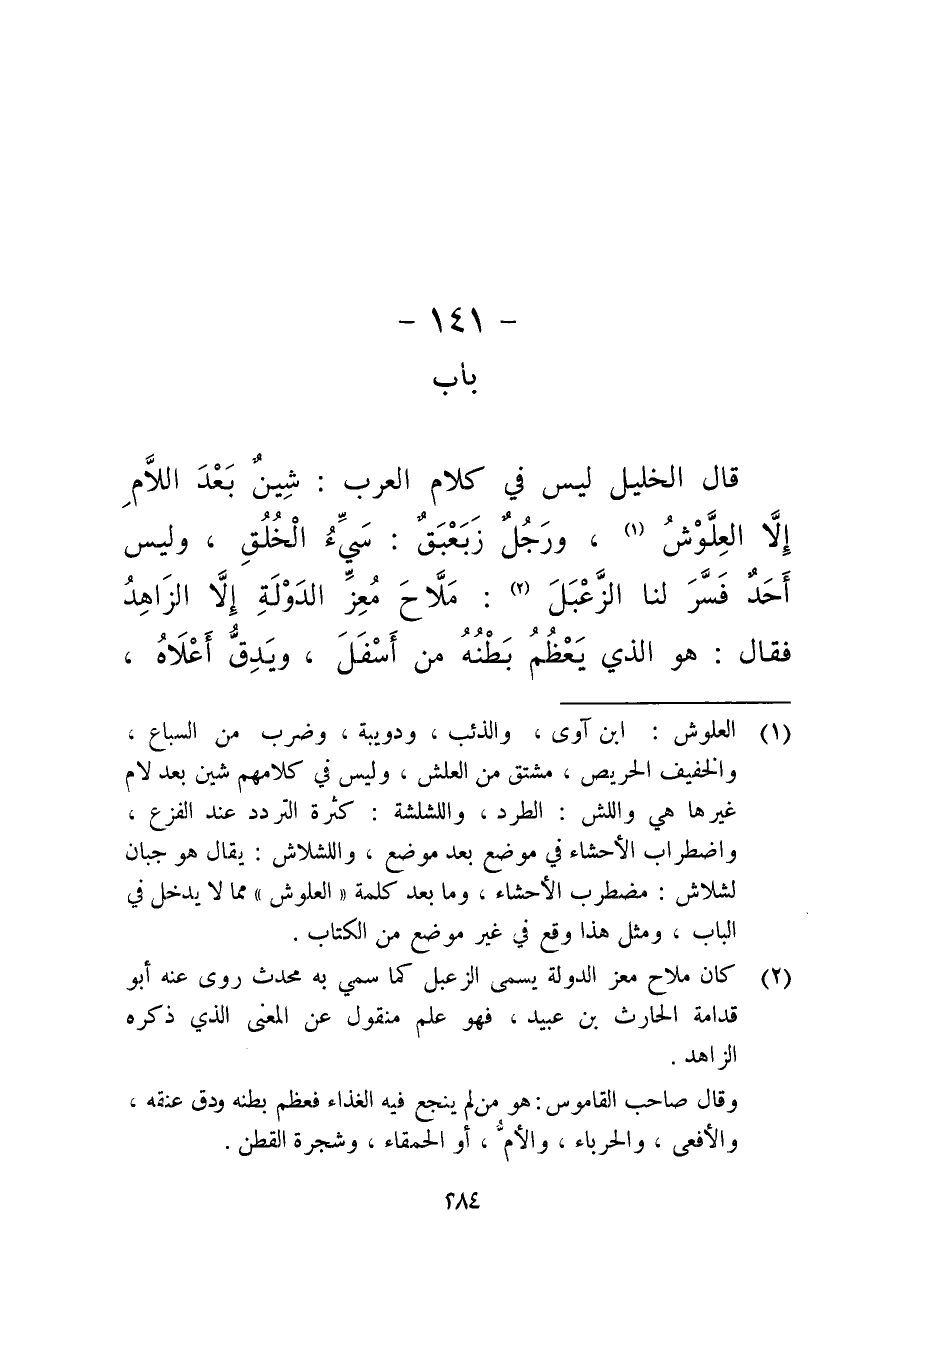 - ١٤١ -
باب
قال الخليل ليس في كلام العرب : شِينٌ بَعْدَ اللاَّمِ
إِلَّا العِلَّوْشُ (١) ، ورَجُلٌ زَبَعْبَقٌ : سَيِّءُ الْخُلُقِ ، وليس
أَحَدٌ فَسَّرَ لنا الزَّعْبَلَ (٢) : مَلَّاحَ مُعِزِّ الدَوْلَةِ إِلَّا الزَاهِدُ
فقال : هو الذي يَعْظُمُ بَطْنُهُ من أَسْفَلَ ، ويَدِقُّ أَعْلَاهُ ،
(١) العلوش : ابن آوى ، والذئب ، ودويبة ، وضرب من السباع ،
والخفيف الحريص ، مشتق من العلش ، وليس في كلامهم شين بعد لام
غيرها هي واللش : الطرد ، واللشلشة : كثرة التردد عند الفزع ،
واضطراب الأحشاء في موضع بعد موضع ، واللشلاش : يقال هو جبان
لشلاش : مضطرب الأحشاء ، وما بعد كلمة « العلوش » مما لا يدخل في
الباب ، ومثل هذا وقع في غير موضع من الكتاب .
(٢) كان ملاح معز الدولة يسمى الزعبل كما سمي به محدث روى عنه أبو
قدامة الحارث بن عبيد ، فهو علم منقول عن المعنى الذي ذكره
الزاهد .
وقال صاحب القاموس : هو من لم ينجع فيه الغذاء فعظم بطنه ودق عنقه ،
والأفعى ، والحرباء ، والأمُّ ، أو الحمقاء ، وشجرة القطن .
٢٨٤